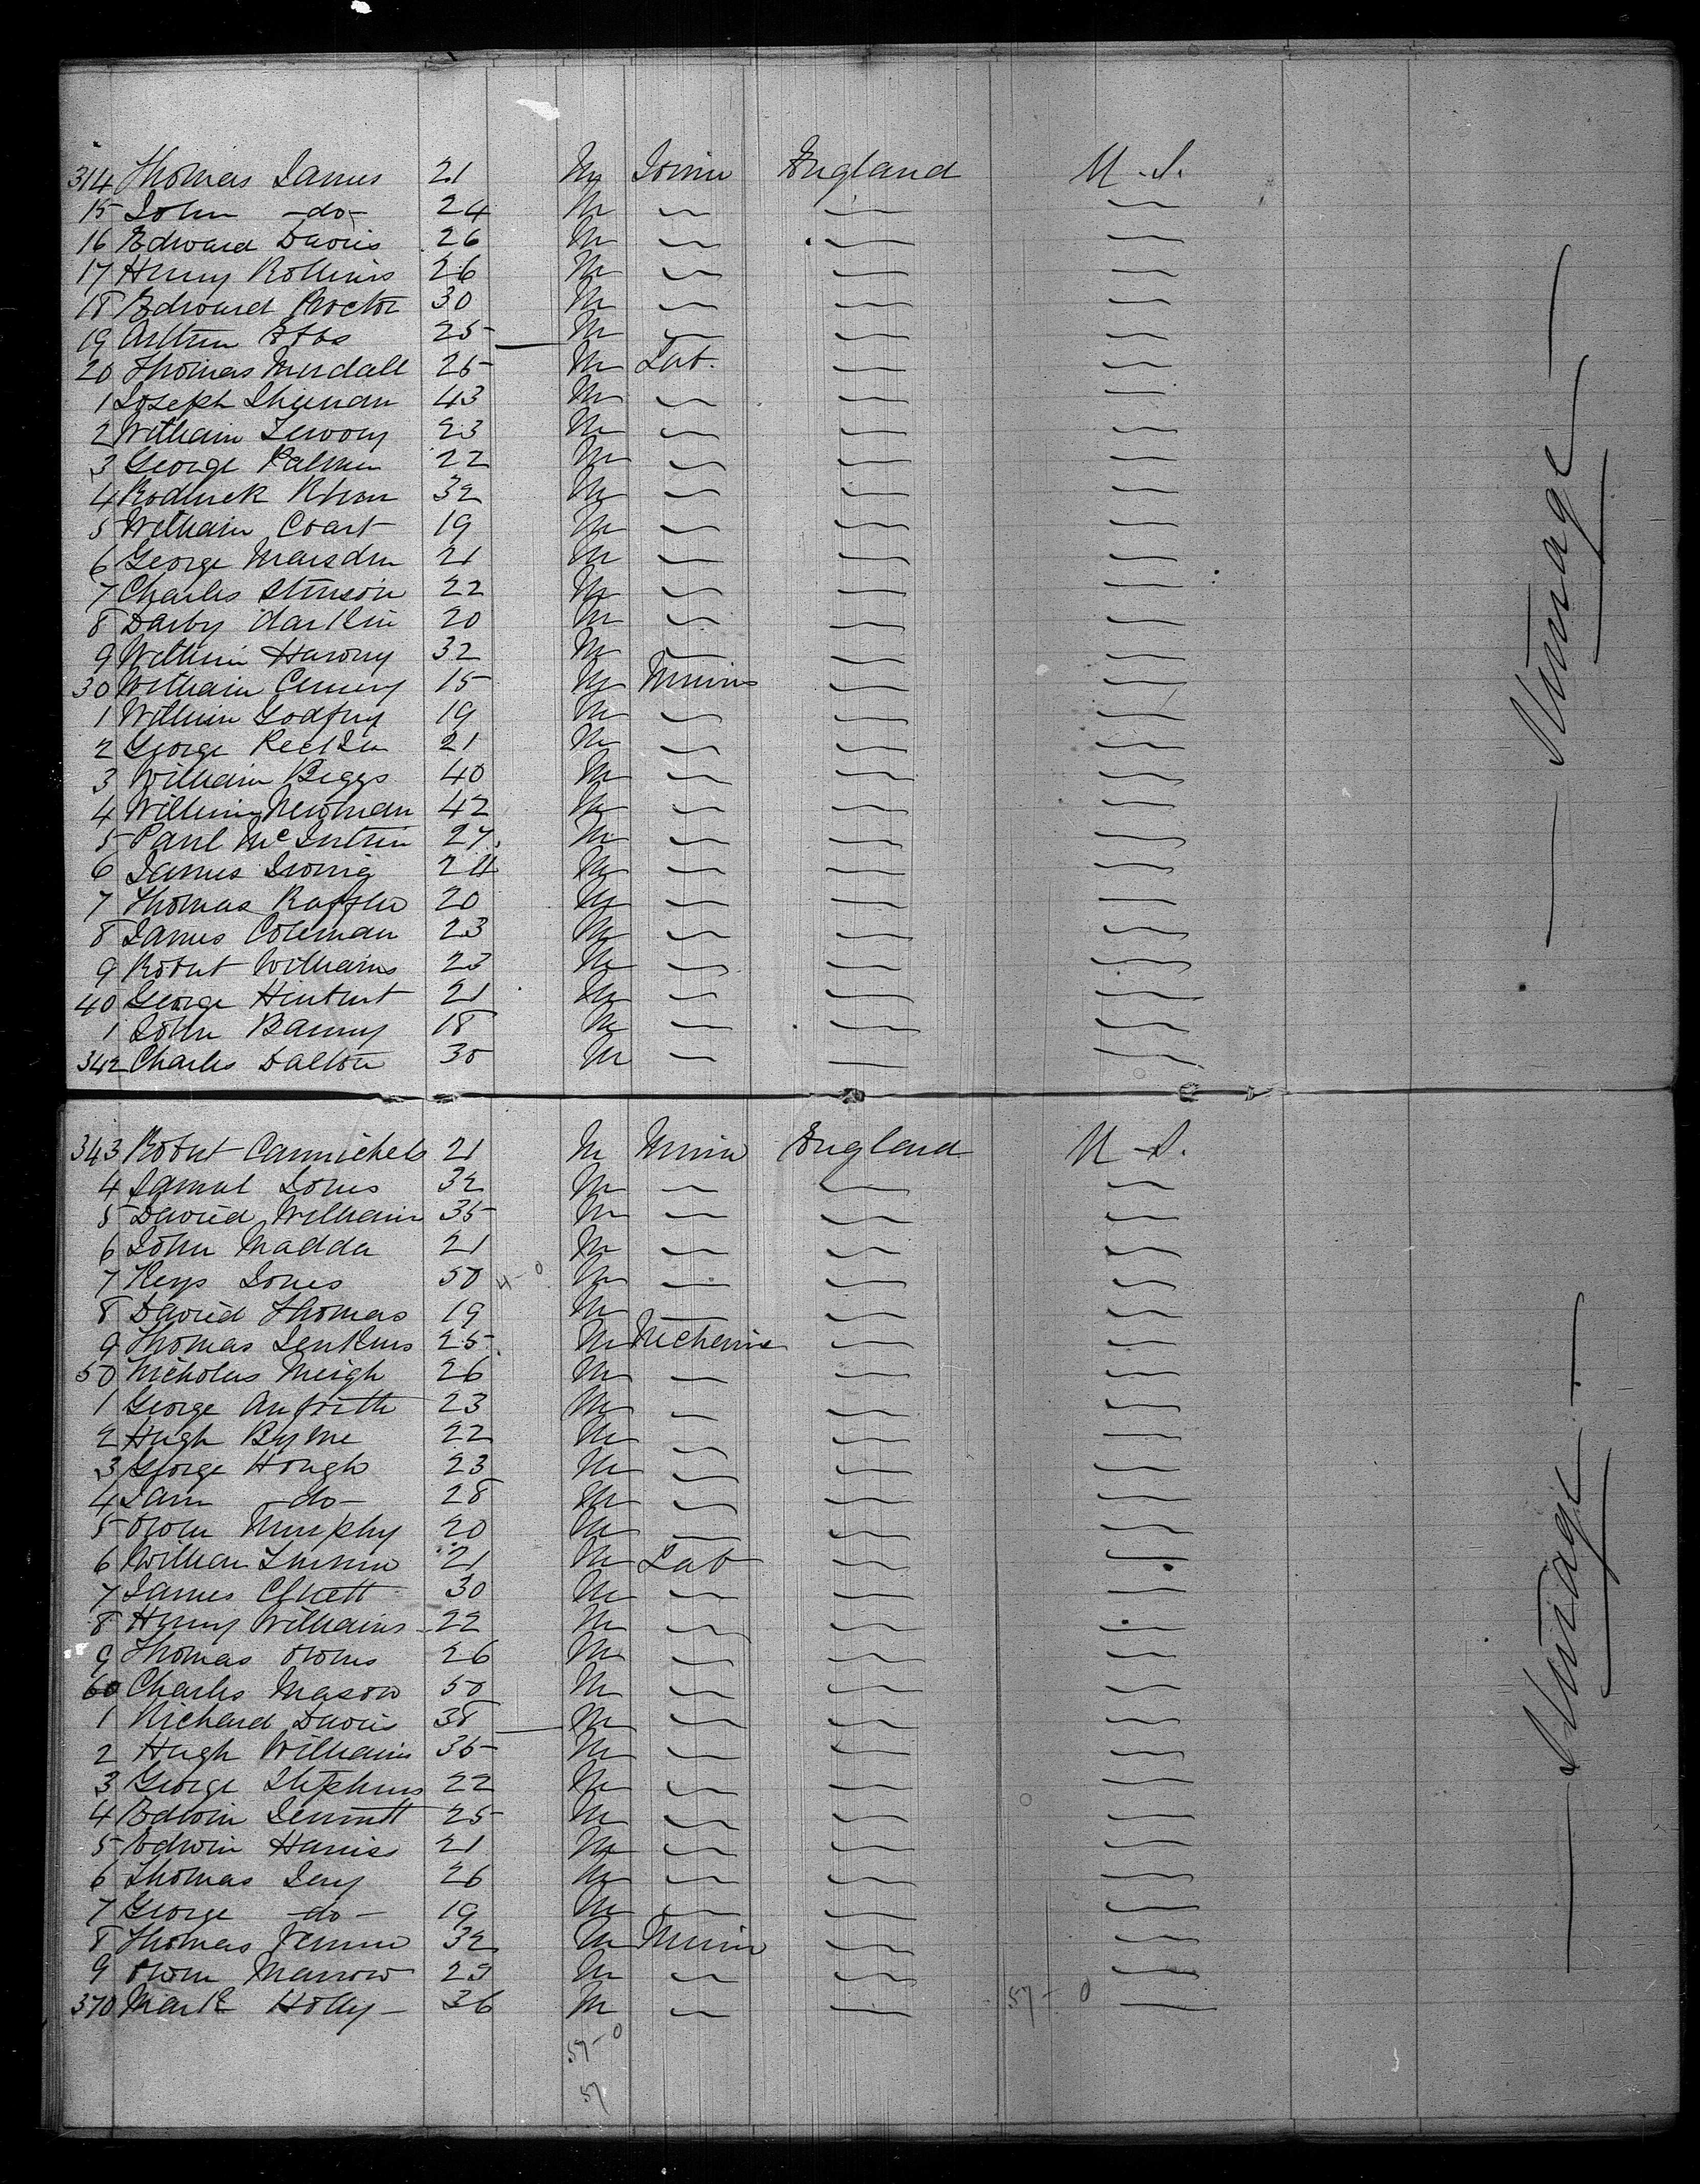 314 Thomas James 21 M Joiner England U.S.
15 John -do- 24 M
16 Edward Davis 26 M
17 Henry Rollins 26 M
18 Edward Proctor 30 M
19 Arthur 25 M
20 Thomas Mundall 25 M Lab.
1 Joseph Sheenan 43 M
2 William 23 M
3 George Palmer 22 M
4 Roderick 32 M
5 William Coart 19 M
6 George Marsden 21 M
7 Charles Stinson 22 M
8 Darby Larkin 20 M
9 William Harvey 32 M
30 William 15 M Miners
1 William Godfrey 19 M
2 George 21 M
3 William Biggs 40 M
4 William Newman 42 M
5 Paul McIntire 27 M
6 James Irving 24 M
7 Thomas 20 M
8 James Coleman 23 M
9 Robert Williams 23 M
40 George 21 M
1 John Barny 18 M
342 Charles Dalton 30 M
Steerage
343 Robert Carmichels 21 M Miner England U.S.
4 Samul Jones 32 M
5 David William 35 M
6 John Madda 21 M
7 Keys Jones 50 4-0 M
8 David Thomas 19 M
9 Thomas Jenkins 25 M Mchenic
50 Nicholas Meigh 26 M
1 George 23 M
2 Hugh Byrne 22 M
3 George Hough 23 M
4 Sam -do- 28 M
5 Owen Murphy 20 M
6 William 21 M Lab
7 James 30 M
8 Henry Williams 22 M
9 Thomas Owens 26 M
60 Charles Mason 50 M
1 Richard Davis 38 M
2 Hugh Williams 35 M
3 George Stephens 22 M
4 Edwin 25 M
5 Edwin Harris 21 M
6 Thomas 26 M
7 George -do- 19 M
8 Thomas 32 M Miner
9 Owen Marrow 29 M
370 Mark Holly 36 M 57-0
57-0
57
Steerage